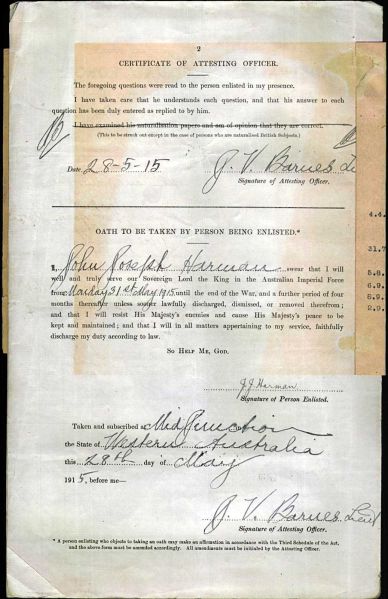 2
CERTIFICATE OF ATTESTING OFFICER.
The foregoing questions were read to the person enlisted in my presence.
I have taken care that he understands each question, and that his answer to each
question has been duly entered as replied to by him.
I have examined his naturalisation papers and am of opinion that they are correct.
(This to be struck out except in the case of persons who are naturalised British Subjects.)
Date 28-5-15 J. V. Barnes Lieu
Signature of Attesting Officer.
OATH TO BE TAKEN BY PERSON BEING ENLISTED.*
I, John Joseph Harman swear that I will
well and truly serve our Sovereign Lord the King in the Australian Imperial Force
from Monday 31st May 1915 until the end of the War, and a further period of four
months thereafter unless sooner lawfully discharged, dismissed, or removed therefrom; and
that I will resist His Majesty's enemies and cause His Majesty's peace to be
kept and maintained; and that I will in all matters appertaining to my service, faithfully
discharge my duty according to law.
So Help Me, God.
J.J. Harman
Signature of Person Enlisted.
Taken and subscribed at Mid Junction
the State of Western Australia
this 28th day of May
1915, before me—
J. V. Barnes Lieut
Signature of Attesting Officer.
* A person enlisting who objects to taking an oath may make an affirmation in accordance with the Third Schedule of the Act,
and the above form must be amended accordingly. All amendments must be initialed by the Attesting Officer.
4.4.
31.7
5.8.
6.9.
6.9.
2.9.